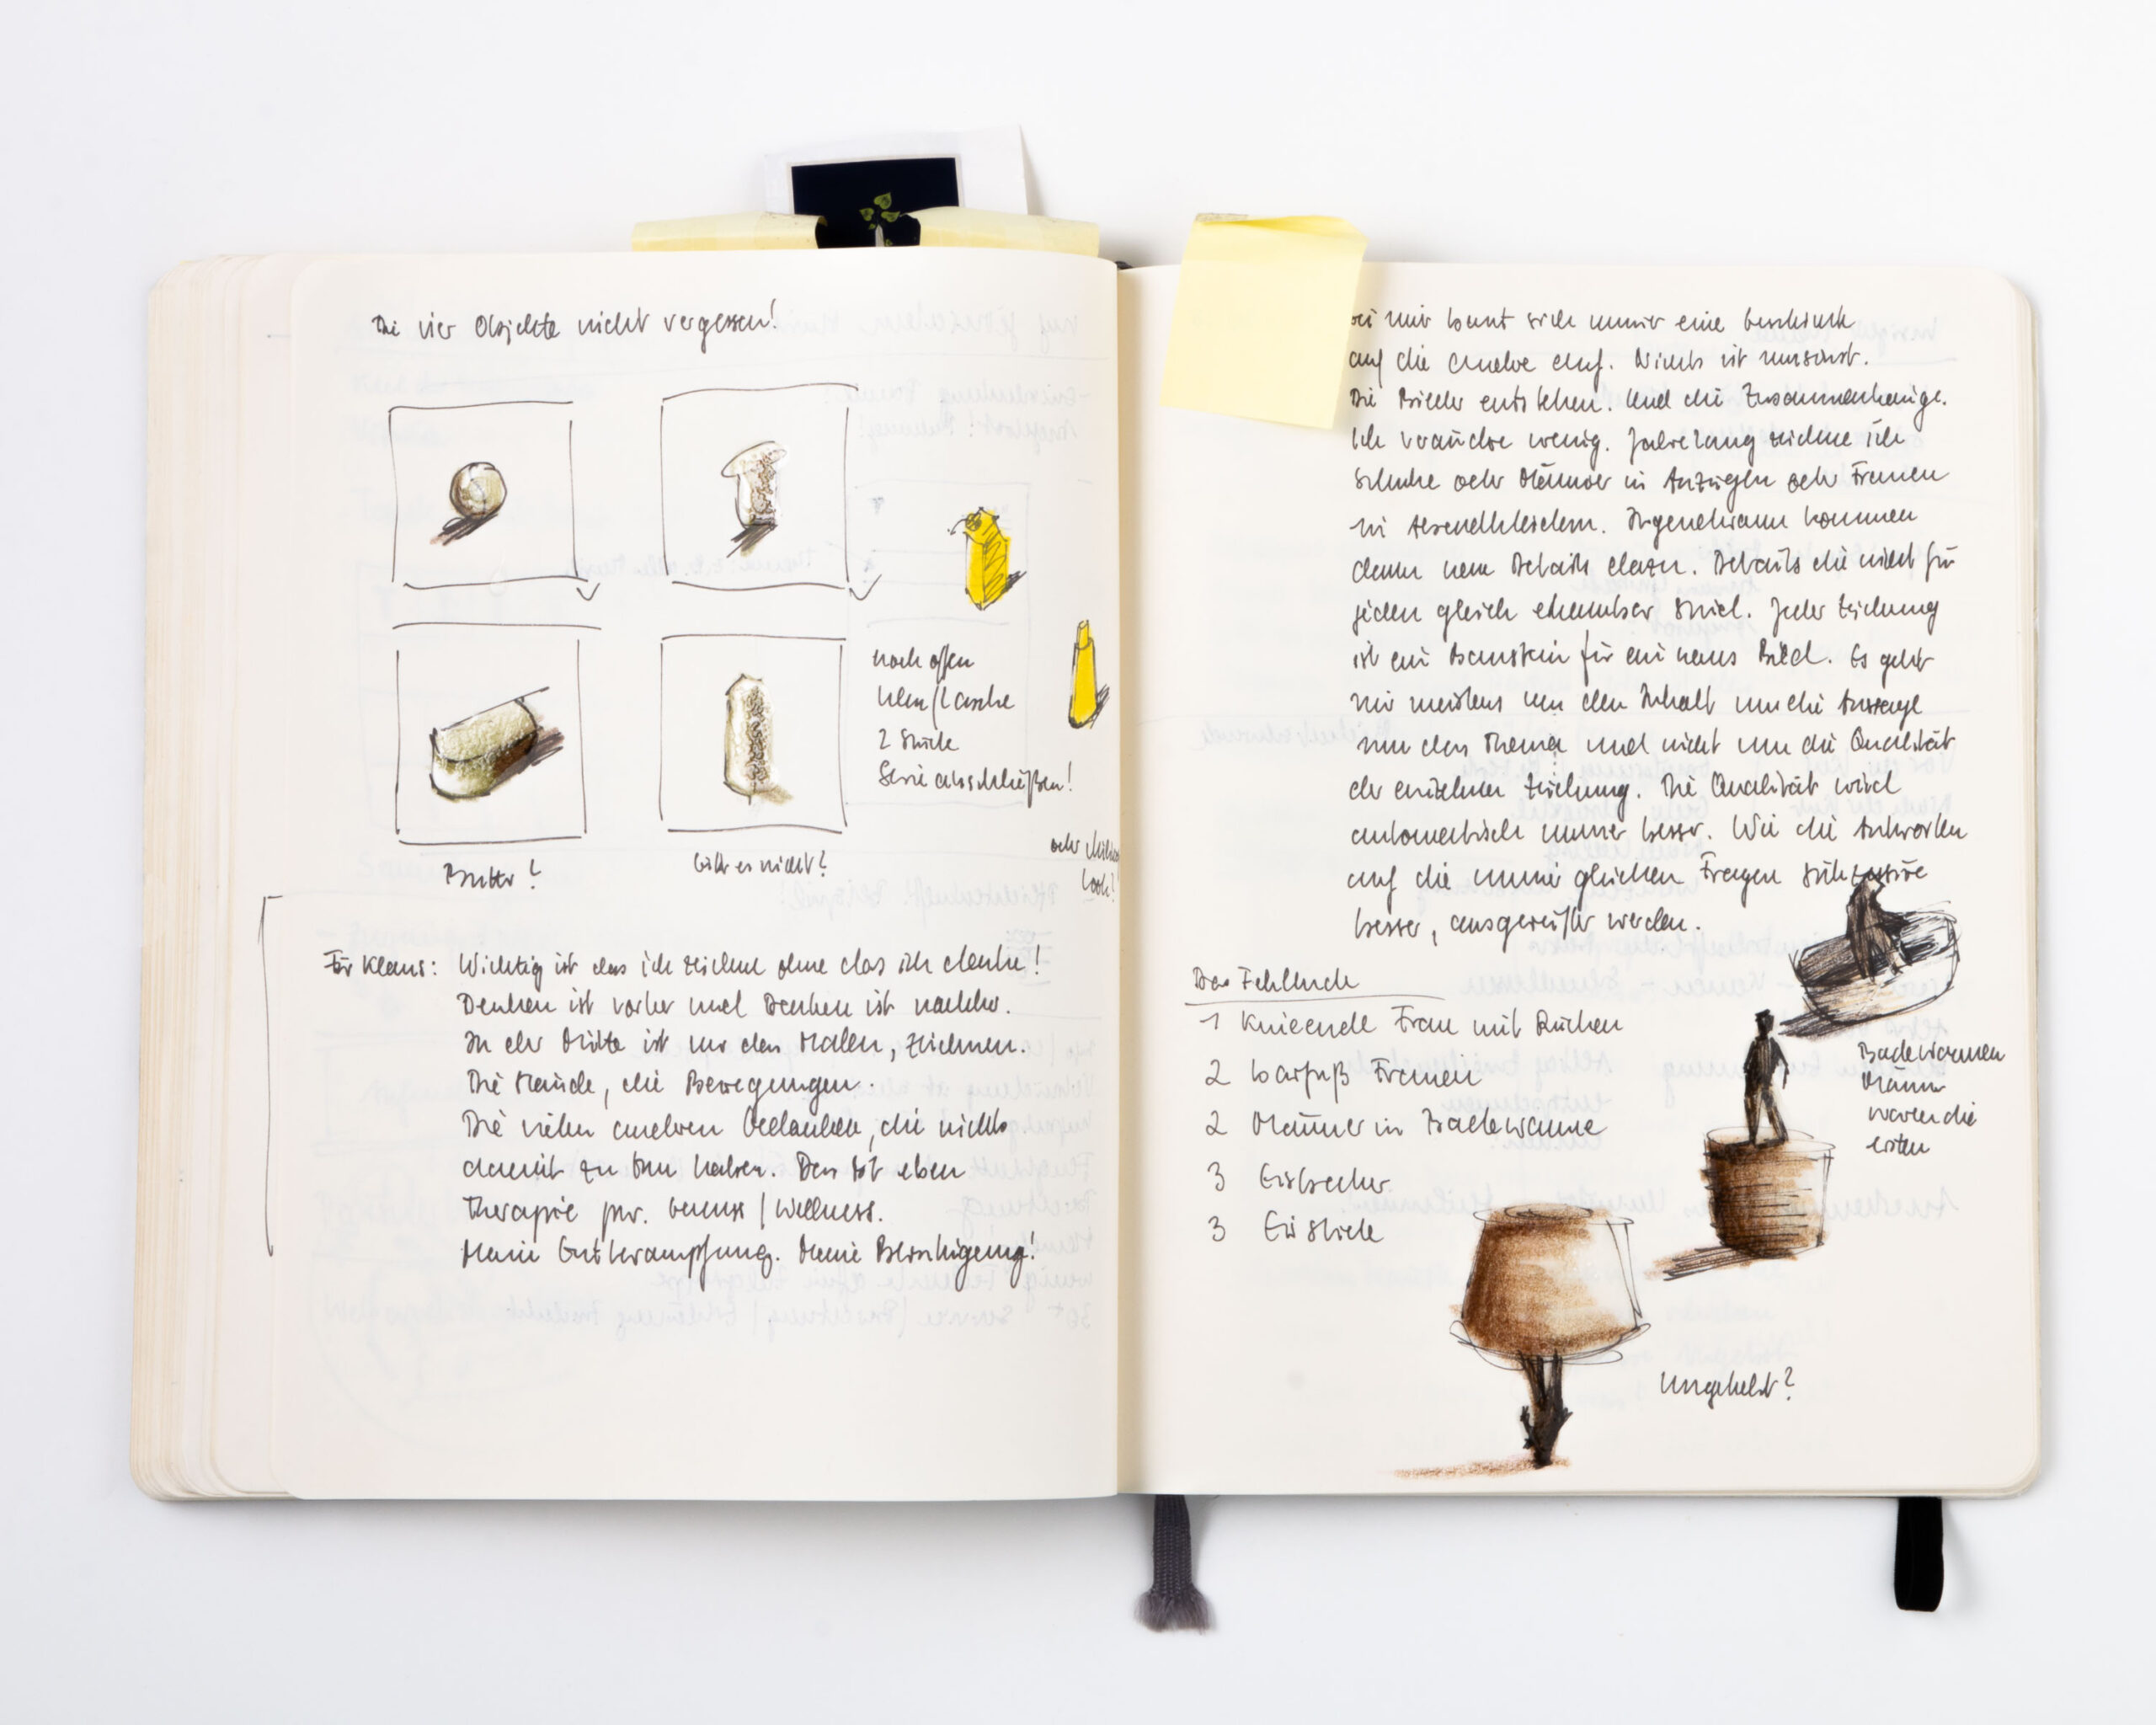 Die vier Objekte nicht vergessen!
noch offen
2 Stück
Serie abschließen!
oder
Butter?
Gibt es nicht?
Für Klaus: Wichtig ist das ich zeichne ohne das ich denke!
Denken ist vorher und Denken ist nachher.
In der Mitte ist nur das Malen, zeichnen.
Die Hände, die Bewegungen.
Die vielen anderen Gedanken, die nichts
damit zu tun haben. Das ist eben
Therapie pur. Genuss / Wellness.
Meine Entkrampfung. Meine Beruhigung!
bei mir baut sich immer eine Geschichte
auf die andere auf. Nichts ist umsonst.
Die Bilder entstehen. Und die Zusammenhänge.
Ich verändre wenig. Jahrelang zeichne ich
Schuhe oder Männer in Anzügen oder Frauen
in Abendkleidern. Irgendwann kommen
dann neue Details dazu. Details die nicht für
jeden gleich erkennbar sind. Jede Zeichnung
ist ein Baustein für ein neues Bild. Es geht
mir meistens um den Inhalt um die Aussage
um das Thema und nicht um die Qualität
der einzelnen Zeichnung. Die Qualität wird
automatisch immer besser. Wie die Antworten
auf die immer gleichen Fragen
besser, ausgereifter werden.
Das Fehlende
1 Knieende Frau mit Rücken
2 barfuß Frauen
2 Männer in Badewanne
3 Eisbecher
3 Eisstiele
Badewannen
Mann
waren die
ersten
Umgekehrt?